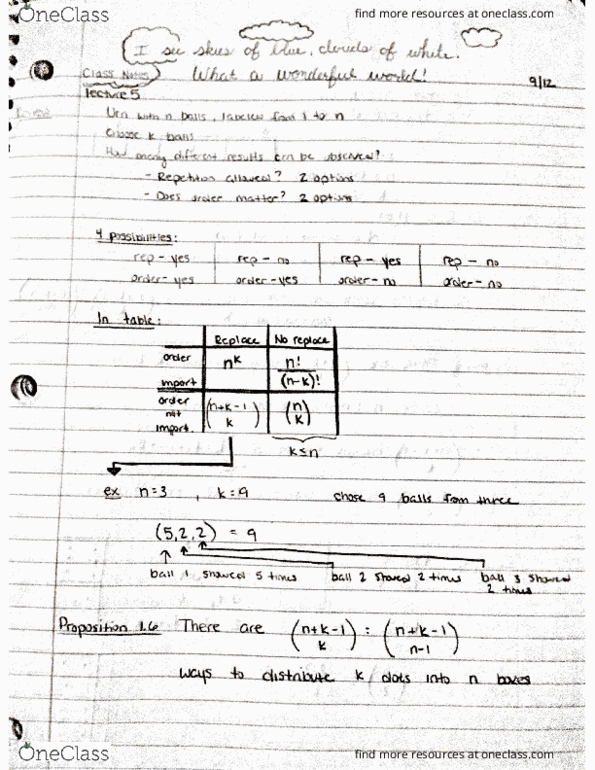 OneClass
find more resources at oneclass.com
I see skies of blue, clouds of white.
What a wonderful world!
9/12
Class Notes
lecture 5
Urn with n balls, labeled from 1 to n
Choose k balls
How many different results can be observed?
- Repetition allowed? 2 options
- Does order matter? 2 options
4 possibilities:
rep - yes | rep - no | rep - yes | rep - no
order - yes | order - yes | order - no | order - no
In table:
Replace | No replace
order import | n^k | n!/(n-k)!
order not import. | (n+k-1 k) | (n k)
k≤n
ex n=3, k=9 chose 9 balls from three
(5,2,2) = 9
ball 1 showed 5 times ball 2 showed 2 times ball 3 showed 2 times
Proposition 1.6 There are (n+k-1 k) = (n+k-1 n-1)
ways to distribute k dots into n boxes
OneClass
find more resources at oneclass.com